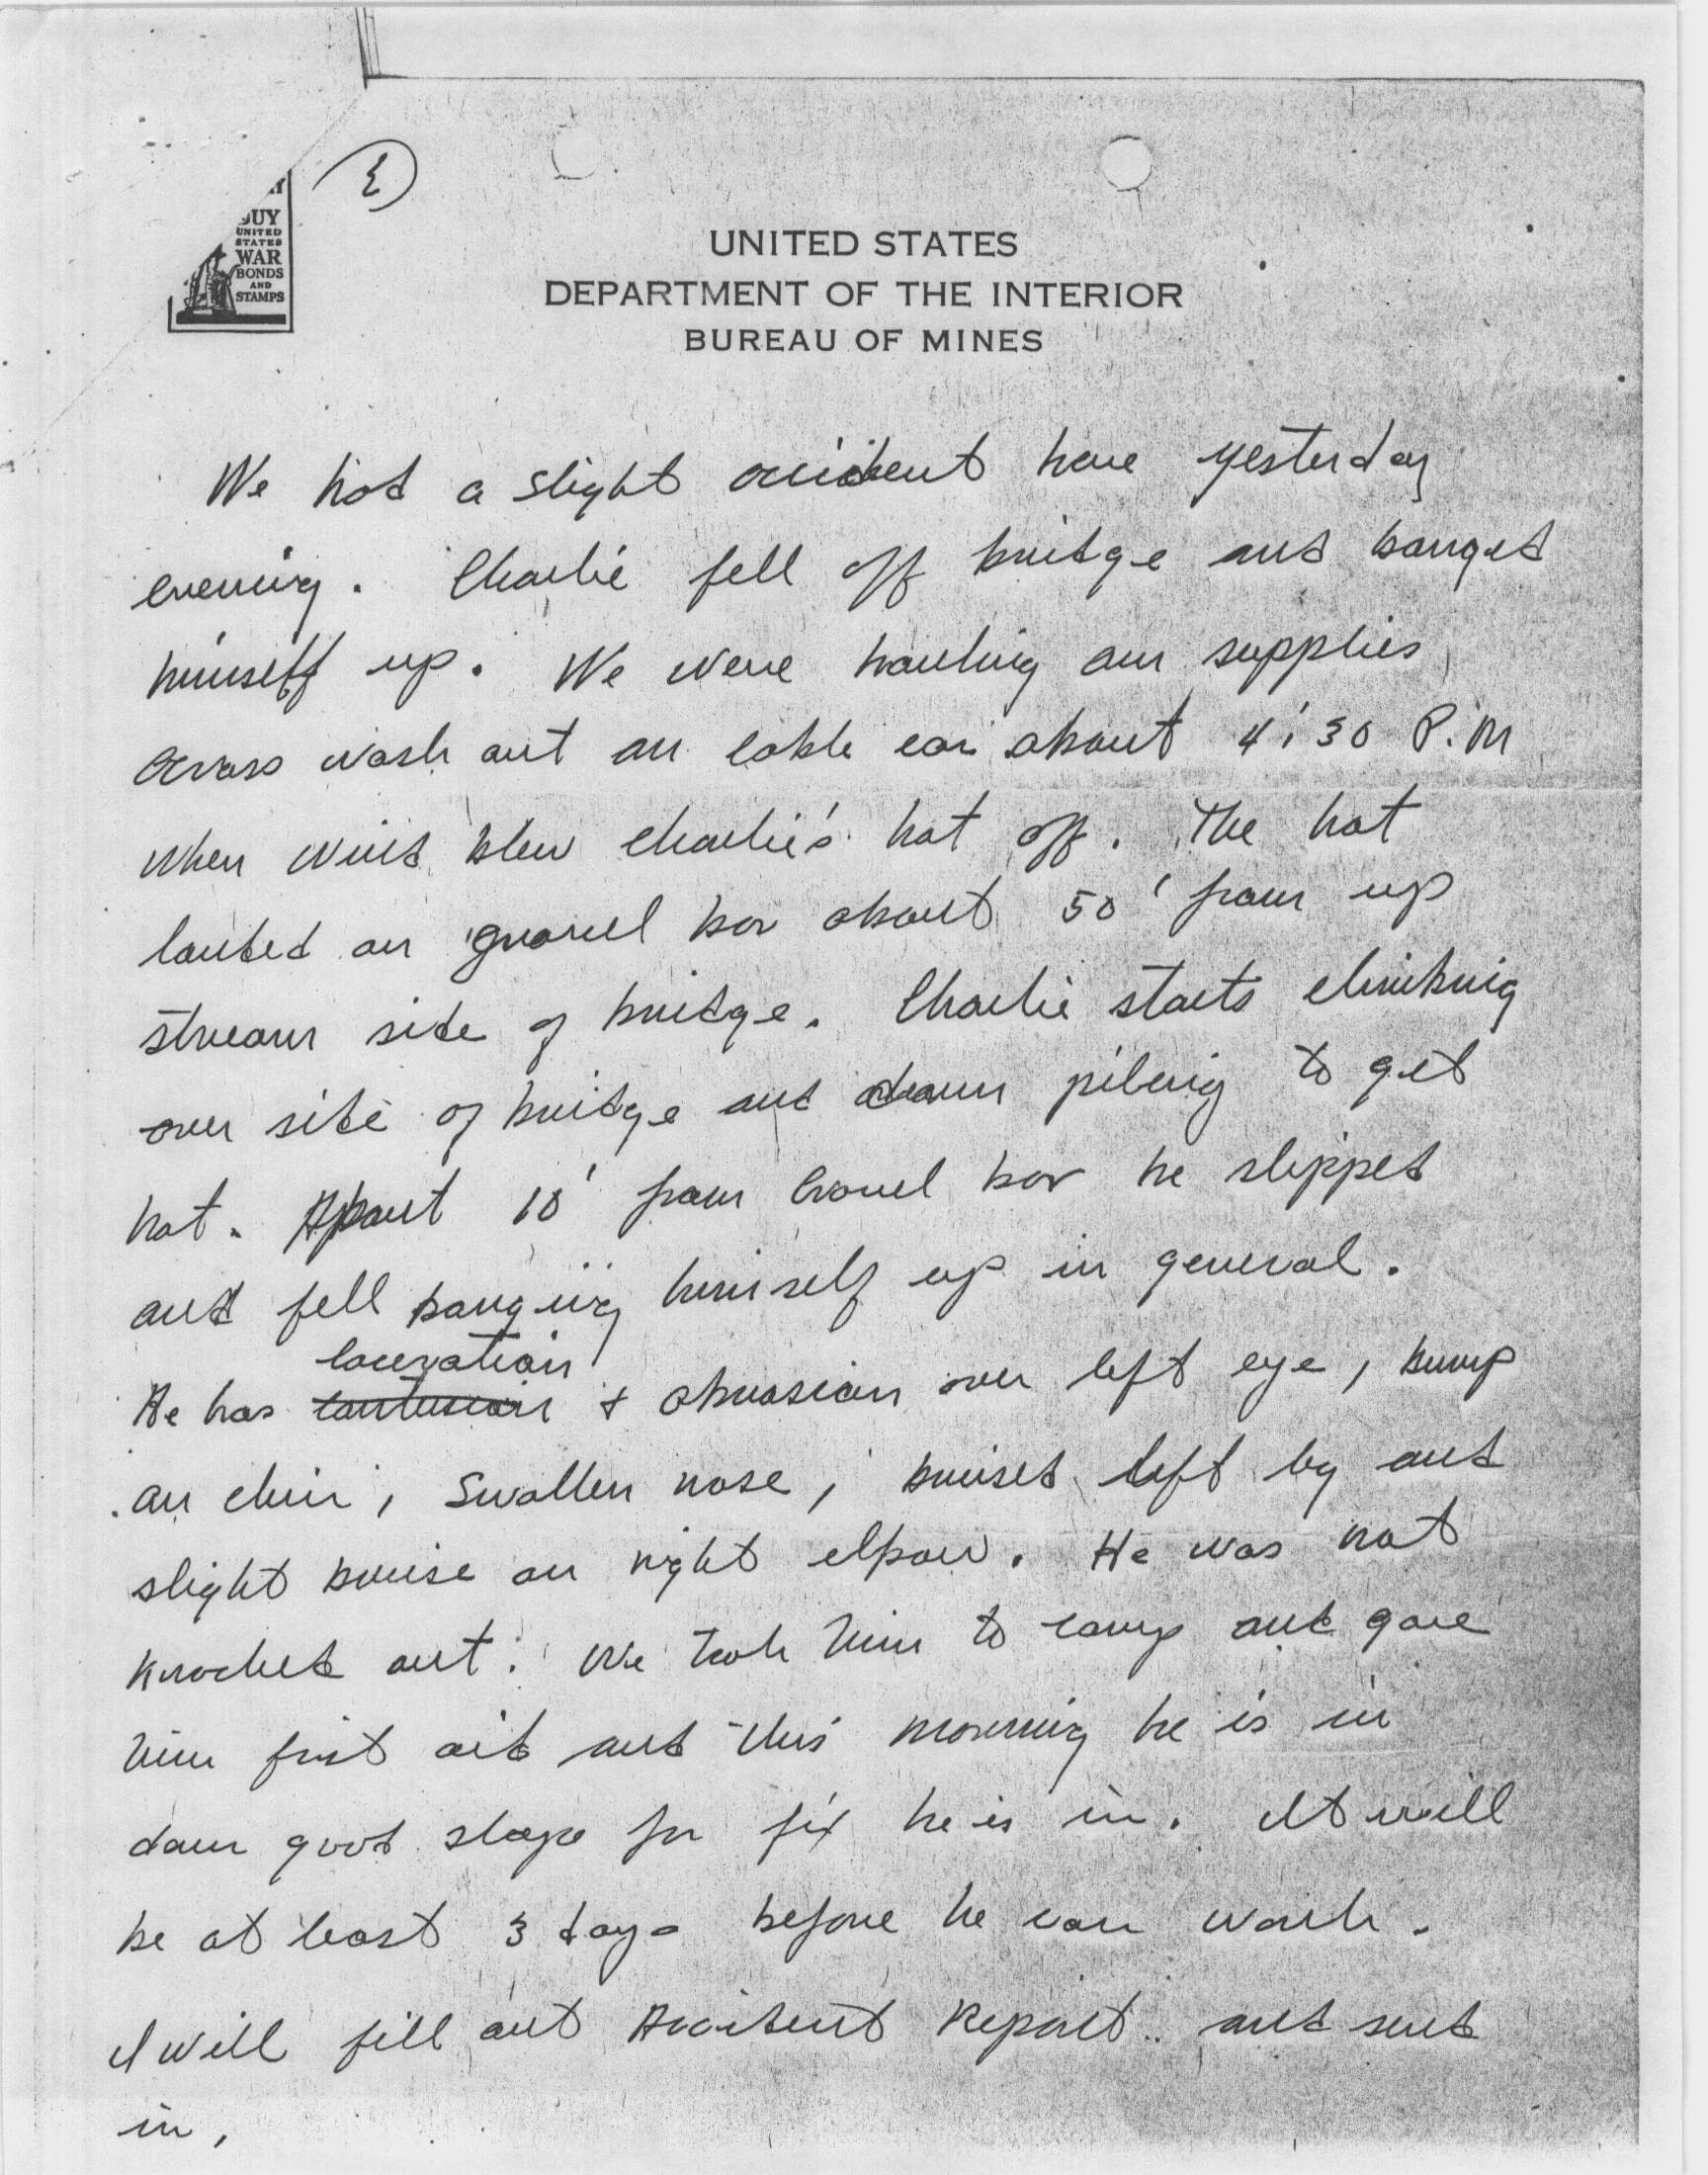 BUY
UNITED
STATES
WAR
BONDS
AND
STAMPS
UNITED STATES
DEPARTMENT OF THE INTERIOR
BUREAU OF MINES
We had a slight accident here yesterday
evening. Charlie fell off bridge and banged
himself up. We were hauling our supplies
across wash out on cable car about 4:30 P.M
when wind blew Charlie's hat off. The hat
landed on gravel bar about 50' from up
stream side of bridge. Charlie starts climbing
over side of bridge and down pileing to get
hat. About 10' from Gravel bar he slipped
and fell banging himself up in general.
laceration
He has contusion & abrasion over left eye, bump
on chin, Swollen nose, bruised left leg and
slight bruise on right elbow. He was not
knocked out. We took him to camp and gave
him first aid and this morning he is in
dam good shape for fix he is in. It will
be at least 3 days before he can work.
I will fill out Accident Report.. and send
in.